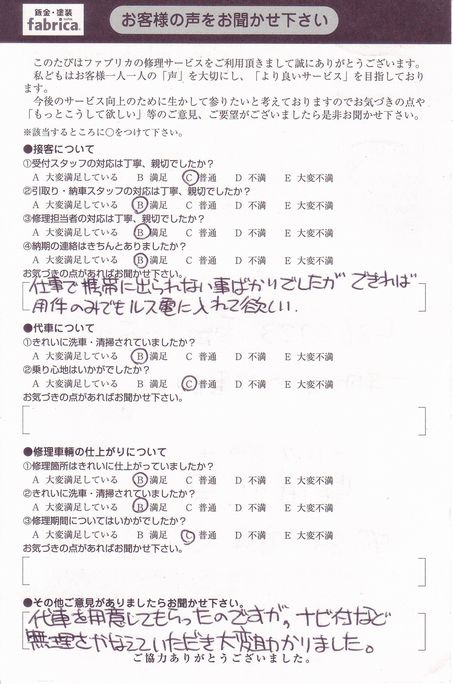 鈑金・塗装
fabrica.
お客様の声をお聞かせ下さい
このたびはファブリカの修理サービスをご利用頂きまして誠にありがとうございます。
私どもはお客様一人一人の「声」を大切にし、「より良いサービス」を目指しており
ます。
今後のサービス向上のために生かして参りたいと考えておりますのでお気づきの点や
「もっとこうして欲しい」等のご意見、ご要望がございましたら是非お聞かせ下さい。
※該当するところに○をつけて下さい。
●接客について
①受付スタッフの対応は丁寧、親切でしたか?
A 大変満足している B 満足 C 普通 D 不満 E 大変不満
②引取り・納車スタッフの対応は丁寧、親切でしたか?
A 大変満足している B 満足 C 普通 D 不満 E 大変不満
③修理担当者の対応は丁寧、親切でしたか?
A 大変満足している B 満足 C 普通 D 不満 E 大変不満
④納期の連絡はきちんとありましたか?
A 大変満足している B 満足 C 普通 D 不満 E 大変不満
お気づきの点があればお聞かせ下さい。
仕事で携帯に出られない事ばかりでしたが できれば
用件のみでもルス電に入れて欲しい.
●代車について
①きれいに洗車・清掃されていましたか?
A 大変満足している B 満足 C 普通 D 不満 E 大変不満
②乗り心地はいかがでしたか?
A 大変満足している B 満足 C 普通 D 不満 E 大変不満
お気づきの点があればお聞かせ下さい。
●修理車輌の仕上がりについて
①修理箇所はきれいに仕上がっていましたか?
A 大変満足している B 満足 C 普通 D 不満 E 大変不満
②きれいに洗車・清掃されていましたか?
A 大変満足している B 満足 C 普通 D 不満 E 大変不満
③修理期間についてはいかがでしたか?
A 大変満足している B 満足 C 普通 D 不満 E 大変不満
お気づきの点があればお聞かせ下さい。
●その他ご意見がありましたらお聞かせ下さい。
代車を用意してもらったのですが, ナビ付など
無理をかなえていただき大変助かりました。
ご協力ありがとうございました。